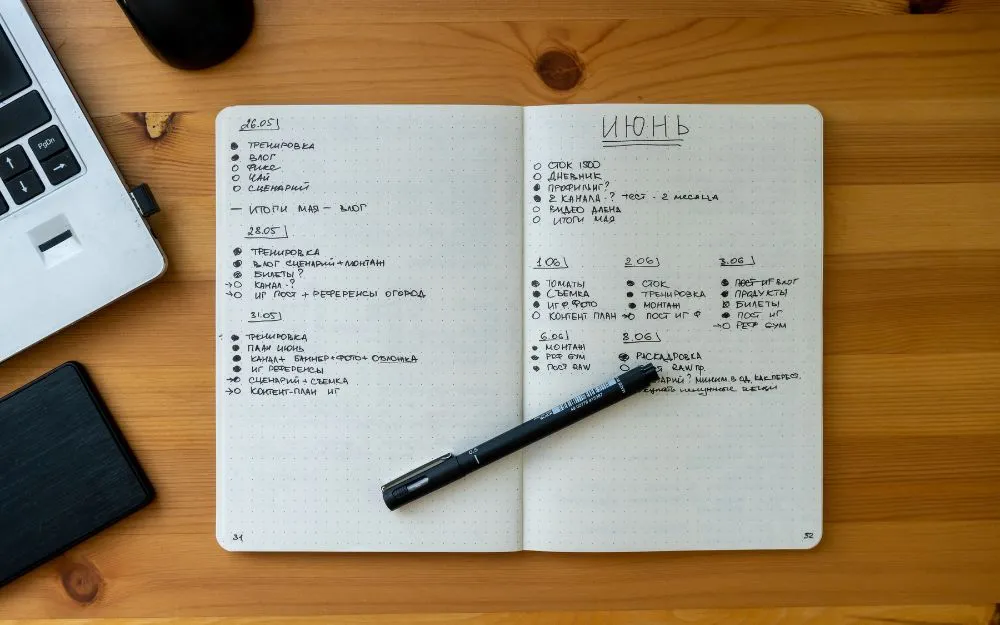 PgDn
26.05
ТРЕНИРОВКА
ВЛОГ
ФИКС
ЧАЙ
СЦЕНАРИЙ
— ИТОГИ МАЯ — ВЛОГ
28.05
ТРЕНИРОВКА
ВЛОГ СЦЕНАРИЙ + МОНТАЖ
БИЛЕТЫ?
КАНАЛ - ?
ИГ ПОСТ + РЕФЕРЕНСЫ ОГОРОД
31.05
ТРЕНИРОВКА
ПЛАН ИЮНЬ
КАНАЛ + БАННЕР + ФОТО + ОБЛОЖКА
ИГ РЕФЕРЕНСЫ
СЦЕНАРИЙ + СЪЕМКА
КОНТЕНТ-ПЛАН ИГ
31
ИЮНЬ
СТОК 1500
ДНЕВНИК
ПРОФИЛИНГ?
2 КАНАЛА - ? ТЕСТ - 2 МЕСЯЦА
ВИДЕО АЛЕНА
ИТОГИ МАЯ
1.06
ТОМАТЫ
СЪЕМКА
ИГ Ф ФОТО
КОНТЕНТ ПЛАН
2.06
СТОК
ТРЕНИРОВКА
МОНТАЖ
ПОСТ ИГ Ф
3.06
ПОСТ ИГ ВЛОГ
ПРОДУКТЫ
БИЛЕТЫ
ПОСТ ИГ
РЕФ GYM
6.06
МОНТАЖ
РЕФ GYM
ПОСТ RAW
8.06
РАСКАДРОВКА
RAW ПР.
МИНИМ. В ОД. КАК ПЕРЕОЗ.
0.5
52